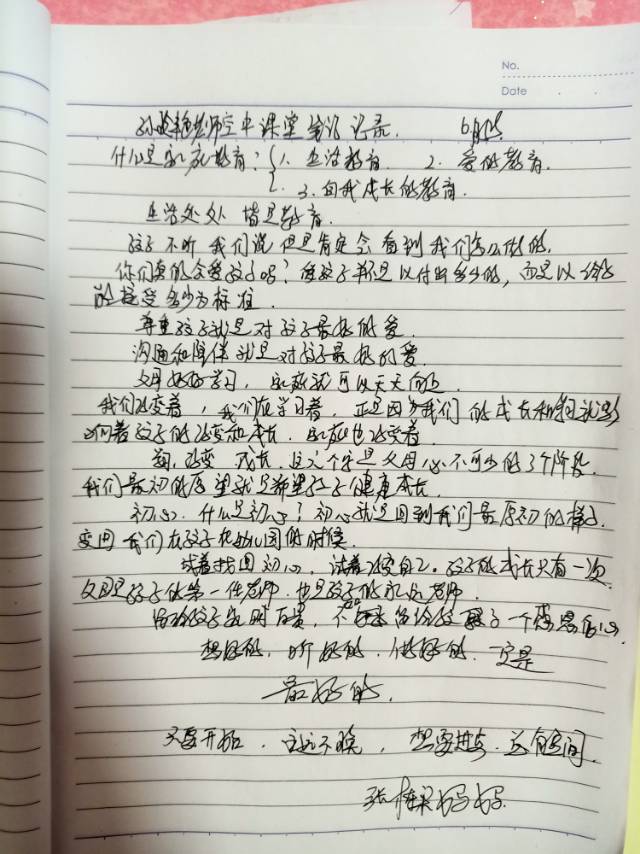 No.
Date
老师空中课堂笔记记录. 6月
什么是家庭教育? 1. 生活教育 2. 爱的教育.
3. 自我成长的教育.
生活处处 皆是教育.
孩子不听我们说 但是肯定会看到我们怎么做的.
你们真的会爱孩子吗? 爱孩子不是以付出多少的, 而是以孩子
能接受多少为标准.
尊重孩子就是对孩子最好的爱.
沟通和陪伴就是对孩子最好的爱.
父母好好学习, 家庭就可以天天向上.
我们改变着, 我们在学习着, 正是因为我们的成长和
着孩子的改变和成长. 家庭也改变着.
改变 成长. 这六个字是父母必不可少的3个阶段.
我们最初的愿望就是希望孩子健康成长.
初心. 什么是初心? 初心就是回到我们最原初的样子.
变回我们在孩子在幼儿园的时候.
试着找回初心, 试着改变自己. 孩子的成长只有一次
父母是孩子的第一任老师. 也是孩子的永远老师.
留给孩子 一个感恩的心.
想好的, 听好的, 做好的. 一定是
最好的.
只要开始. 永远不晚, 想要进步. 总有空间.
张 妈妈